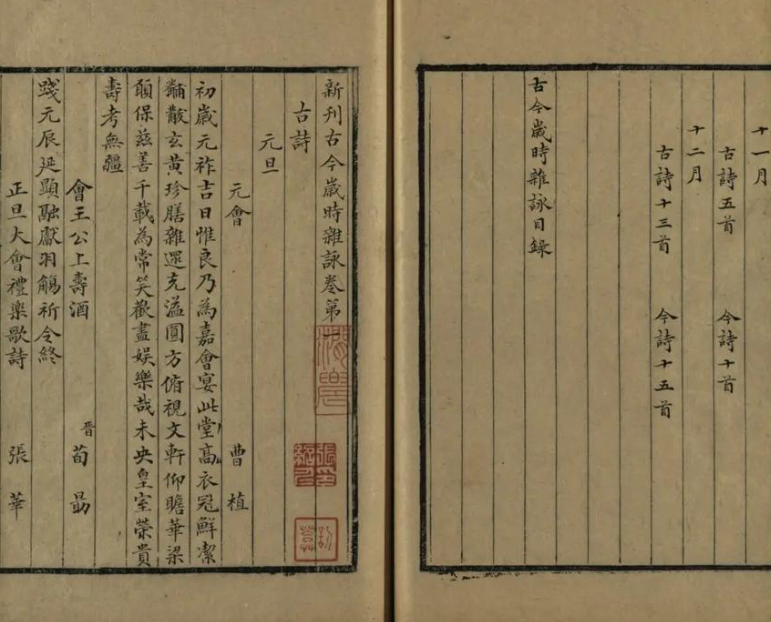 十一月
古詩五首 今詩十首
十二月
古詩十三首 今詩十五首
古今歲時雜詠目錄
新刊古今歲時雜詠卷第一
古詩
元旦
元會 曹植
初歲元祚吉日惟良乃為嘉會宴此堂高衣冠鮮潔
黼黻玄黃珍膳雜遝充溢圓方俯視文軒仰瞻華梁
願保茲善千載為常笑歡盡娛樂哉未央皇室榮貴
壽考無疆
會王公上壽酒 晉荀勗
踐元辰延顯融獻羽觴祈令終
正旦大會禮樂歌詩 張華
張印紹仁
訒菴